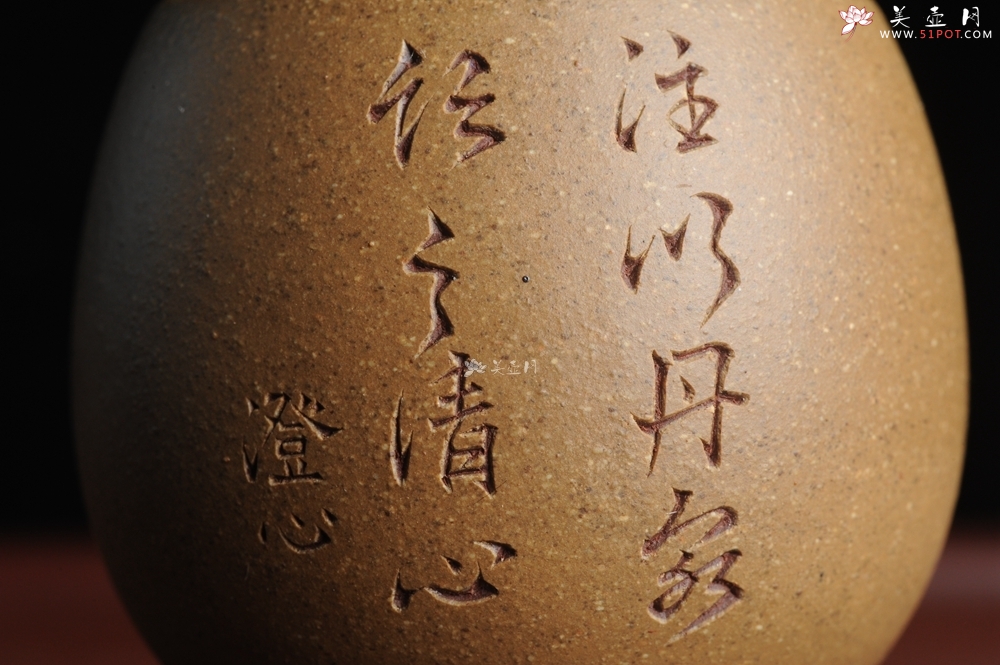 注以丹泉
饮之清心
澄心
美壶网
WWW.51POT.COM
美壶网